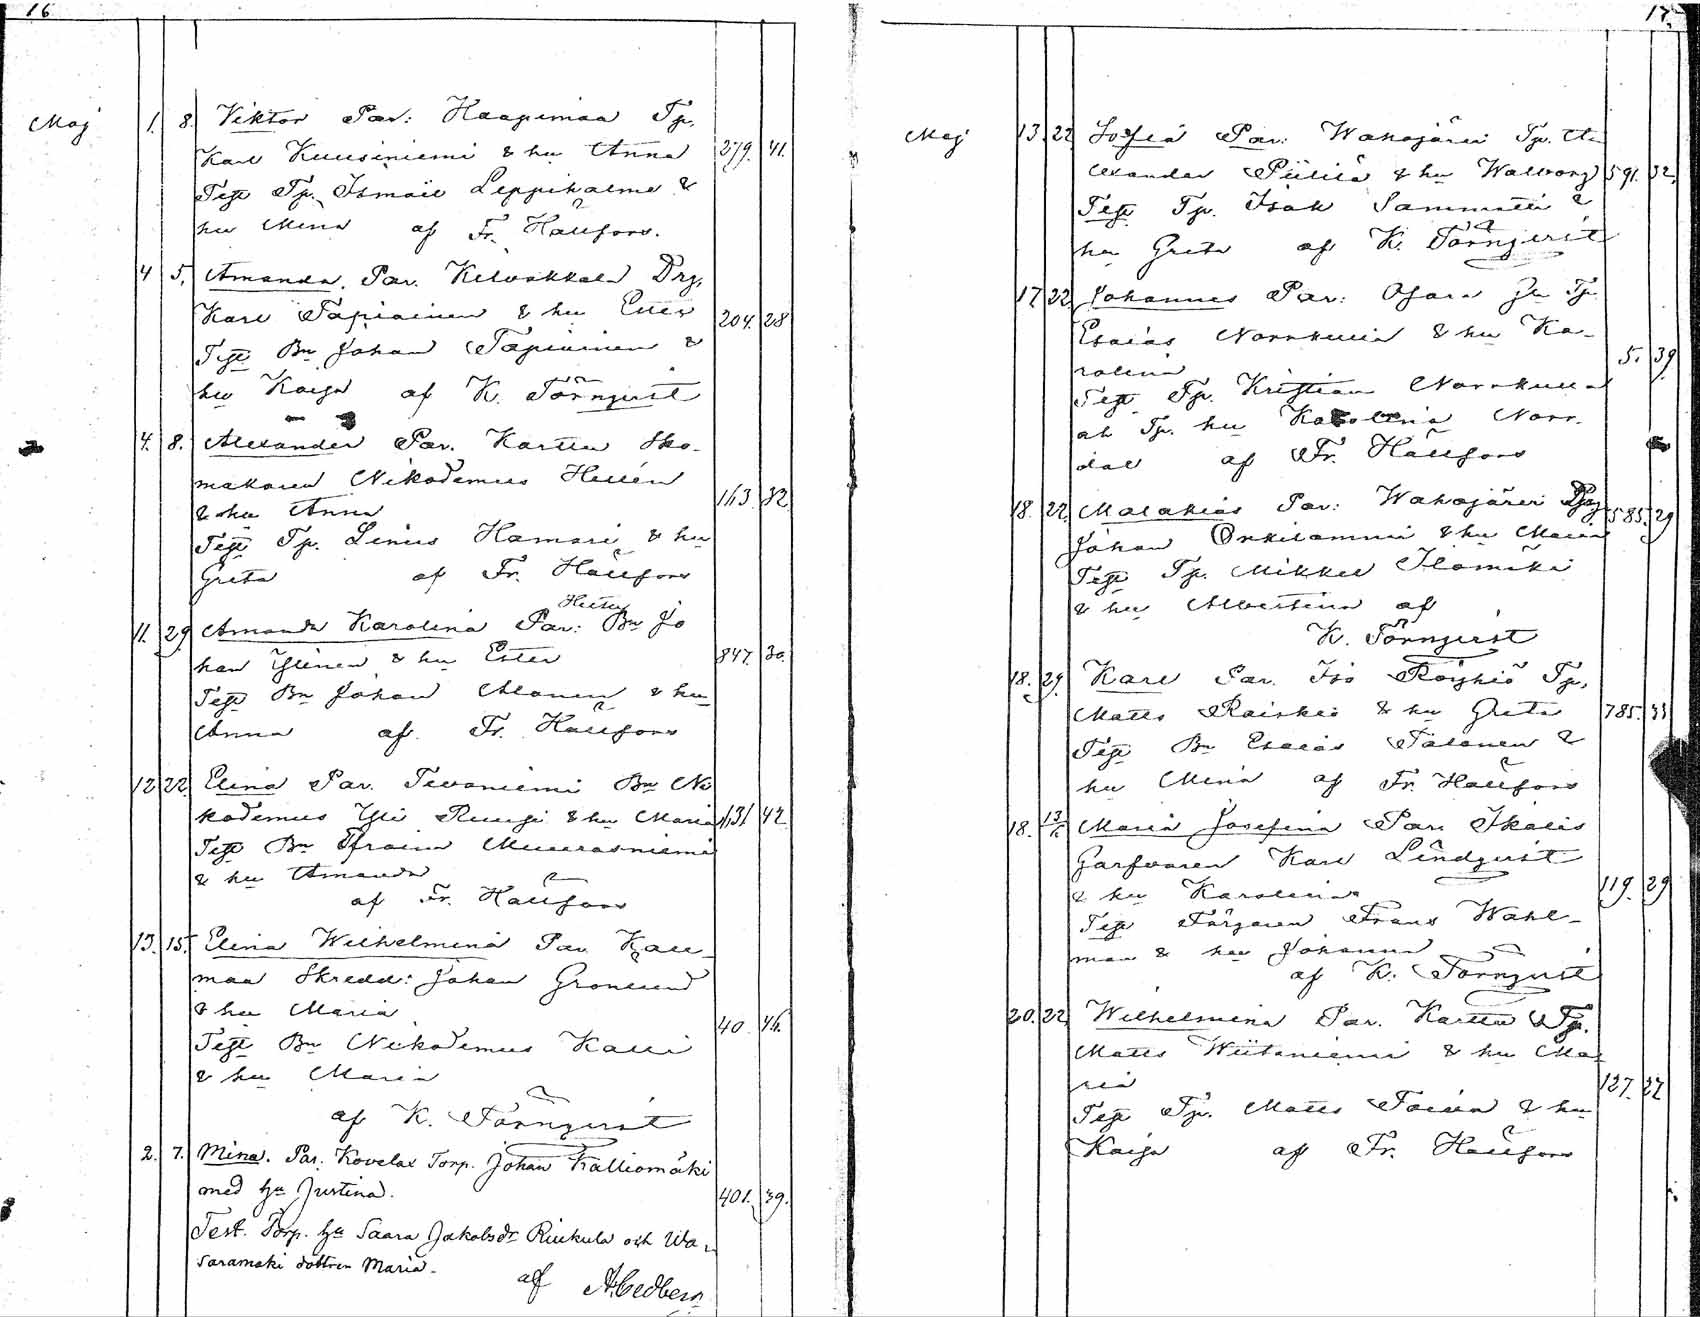 16
Maj
1. 8. Viktor Par: Haapimaa Tp.
Karl Kuusiniemi & hu Anna 279. 41.
Test Tp. Ismaël Leppihalme &
hu Mina af Fr. Hällfors.
4 5. Amanda. Par. Kilvakkala Drg.
Karl Tapiainen & hu Ester 204. 28
Test Bn Johan Tapiainen &
hu Kaisa af K. Törnqvist
4. 8. Alexander Par. Karttu Sko-
makaren Nikodemus Hellén
& hu Anna 32.
Test Tp. Linus Hamari & hu
Greta af Fr. Hällfors
11. 29. Amanda Karolina Par: Bn Jo
han Ylinen & hu Ester 847. 30.
Test Bn Johan Alanen & hu
Anna af Fr. Hällfors
12 22. Elina Par. Tevaniemi Bn Ni
kodemus Yli & hu Maria 42
Test Bn Efraim
& hu Amanda
af Fr. Hällfors
13. 15. Elina Wilhelmina Par.
maa Skredd: Johan Gronlund
& hu Maria 40
Test Bn Nikodemus Kalli
& hu Maria
af K. Törnqvist
2. 7. Mina. Par. Kovelax Torp. Johan Kalliomäki
med hu Justina. 401. 39.
Test. Torp. hu Saara Jakobsdr och
saramäki dottren Maria.
af A. Cedberg
17.
Maj
13. 22 Sofia Par: Wahojärvi Tp. Al
exander & hu Walborg 591. 32.
Test Tp. Isak Sammatti &
hu Greta af K. Törnqvist
17 22 Johannes Par: Tp.
Esaias & hu Ka-
rolina 5. 39
Test Tp. Kristian
Tp. hu Karolina Norr-
dal af Fr. Hällfors
18. 22. Malakias Par: Wahojärvi 585. 29
Johan Onkilammi & hu Maria
Test Tp. Mikkel Ilomäki
& hu Albertina af
K. Törnqvist
18. 29. Karl Par. Iso Röyhiö Tp.
Matts & hu Greta 785. 33
Test Bn Esaias Talonen &
hu Mina af Fr. Hällfors
18. 13/6 Maria Josefina Par. Ikalis
Garfvaren Karl Lindqvist
& hu Karolina 119. 29
Test Färgaren Frans Wahl-
man & hu Johanna
af K. Törnqvist
20. 22 Wilhelmina Par. Karttu Tp.
Matts Wiitaniemi & hu Ma-
ria 127. 27
Test Tp. Matts & hu
Kaisa af Fr. Hällfors